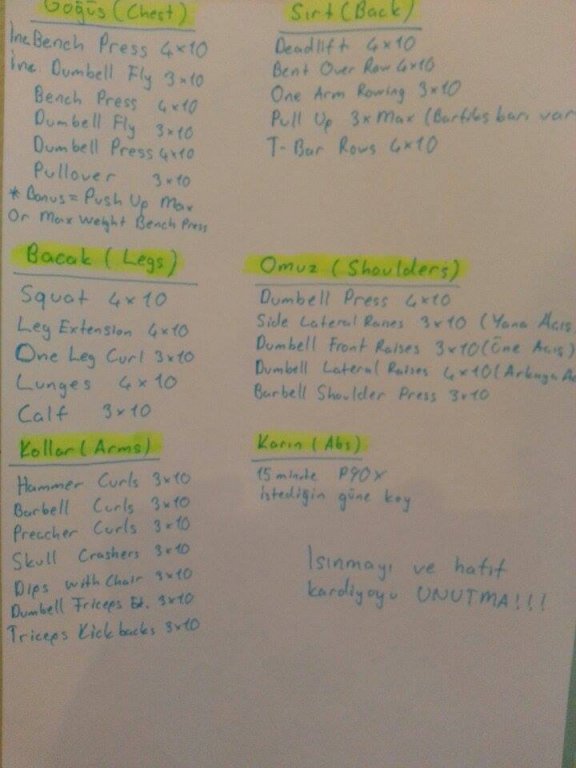 Göğüs (Chest)
Inc Bench Press 4x10
Inc Dumbell Fly 3x10
Bench Press 4x10
Dumbell Fly 3x10
Dumbell Press 4x10
Pullover 3x10
* Bonus = Push Up Max
Or Max Weight Bench Press
Sırt (Back)
Deadlift 4x10
Bent Over Row 4x10
One Arm Rowing 3x10
Pull Up 3xMax (Barfiks barı var
T-Bar Rows 4x10
Bacak (Legs)
Squat 4x10
Leg Extension 4x10
One Leg Curl 3x10
Lunges 4x10
Calf 3x10
Omuz (Shoulders)
Dumbell Press 4x10
Side Lateral Raises 3x10 (Yana Açış
Dumbell Front Raises 3x10 (Öne Açış)
Dumbell Lateral Raises 4x10 (Arkaya
Barbell Shoulder Press 3x10
Kollar (Arms)
Hammer Curls 3x10
Barbell Curls 3x10
Preacher Curls 3x10
Skull Crashers 3x10
Dips with Chair 3x10
Dumbell Triceps Ext. 3x10
Triceps Kickbacks 3x10
Karın (Abs)
15 minute P90X
istediğin güne koy
Isınmayı ve hafif
kardiyoyu UNUTMA!!!